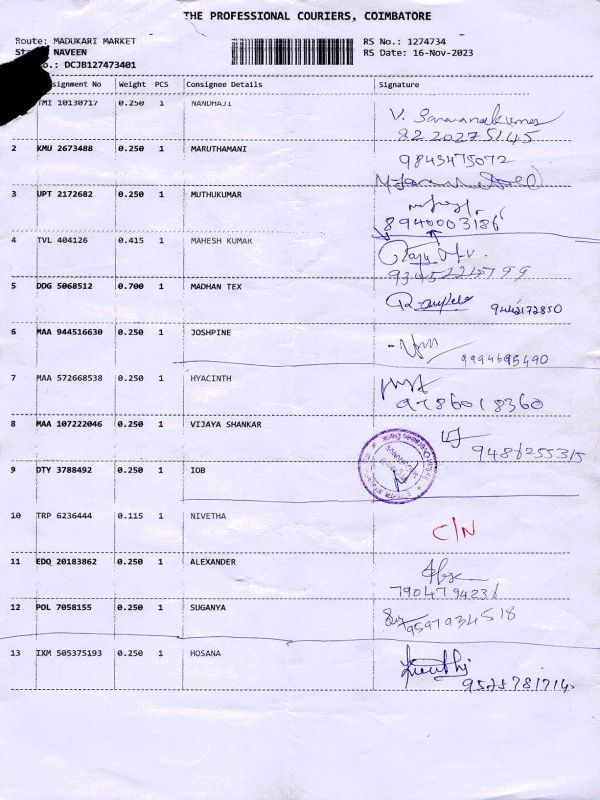 THE PROFESSIONAL COURIERS, COIMBATORE
Route: MADUKARI MARKET
NAVEEN
RS No.: 1274734
RS Date: 16-Nov-2023
o.: DCJB127473401
signment No Weight PCS Consignee Details Signature
TMI 10130717 0.250 1 NANDHAJI
V. Saravanakumar
8220275145
2 KMU 2673488 0.250 1 MARUTHAMANI
9843475072
3 UPT 2172682 0.250 1 MUTHUKUMAR
8940003186
4 TVL 404126 0.415 1 MAHESH KUMAR
9345224799
5 DDG 5068512 0.700 1 MADHAN TEX
9442172850
6 MAA 944516630 0.250 1 JOSHPINE
9994695490
7 MAA 572668538 0.250 1 HYACINTH
9786018360
8 MAA 107222046 0.250 1 VIJAYA SHANKAR
9486255315
9 DTY 3788492 0.250 1 IOB
10 TRP 6236444 0.115 1 NIVETHA
C/N
11 EDQ 20183862 0.250 1 ALEXANDER
7904794236
12 POL 7058155 0.250 1 SUGANYA
9597934518
13 IXM 505375193 0.250 1 HOSANA
9525781714